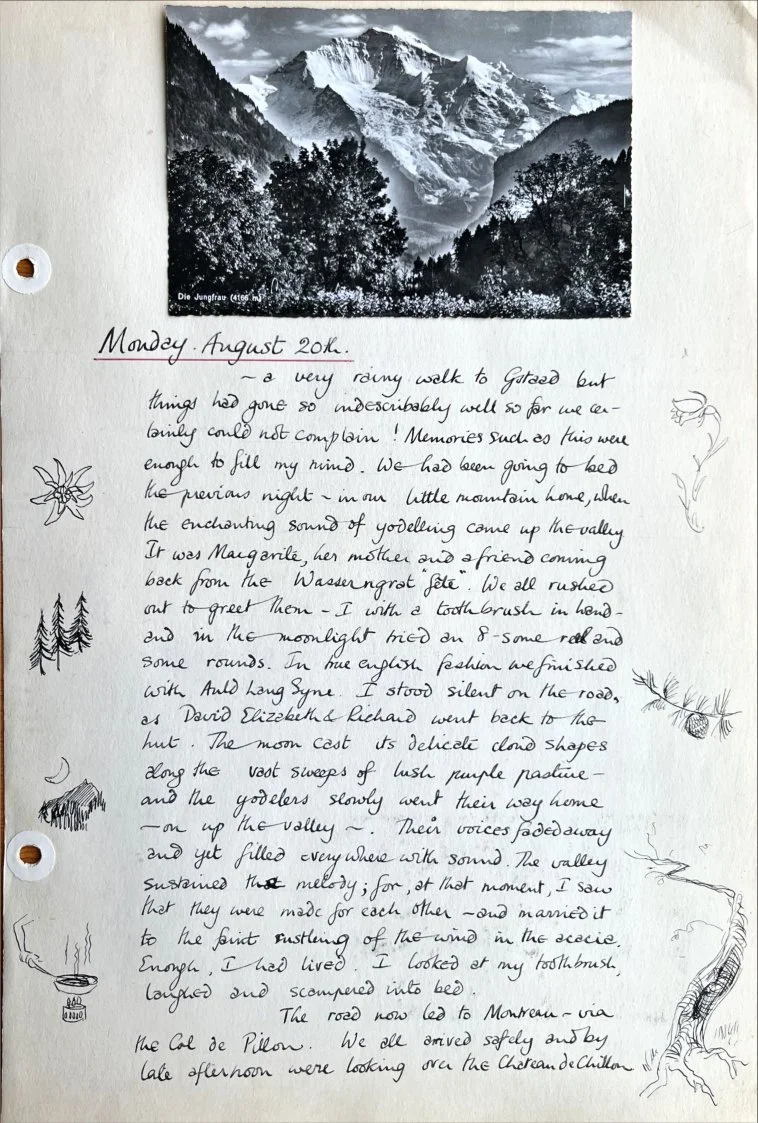 Die Jungfrau (4166 m)
Monday. August 20th.
~ a very rainy walk to Gstaad but
things had gone so indescribably well so far we cer-
tainly could not complain! Memories such as this were
enough to fill my mind. We had been going to bed
the previous night ~ in our little mountain home, when
the enchanting sound of yodelling came up the valley
It was Margarite, her mother and a friend coming
back from the Wasserngrat "fête". We all rushed
out to greet them - I with a toothbrush in hand -
and in the moonlight tried an 8-some reel and
some rounds. In true english fashion we finished
with Auld Lang Syne. I stood silent on the road,
as David Elizabeth & Richard went back to the
hut. The moon cast its delicate cloud shapes
along the vast sweeps of lush purple pasture -
and the yodelers slowly went their way home
- on up the valley ~. Their voices faded away
and yet filled everywhere with sound. The valley
sustained that melody; for, at that moment, I saw
that they were made for each other - and married it
to the faint rustling of the wind in the acacia.
Enough, I had lived. I looked at my toothbrush,
laughed and scampered into bed.
The road now led to Montreau - via
the Col de Pillon. We all arrived safely and by
late afternoon were looking over the Chateau de Chillon